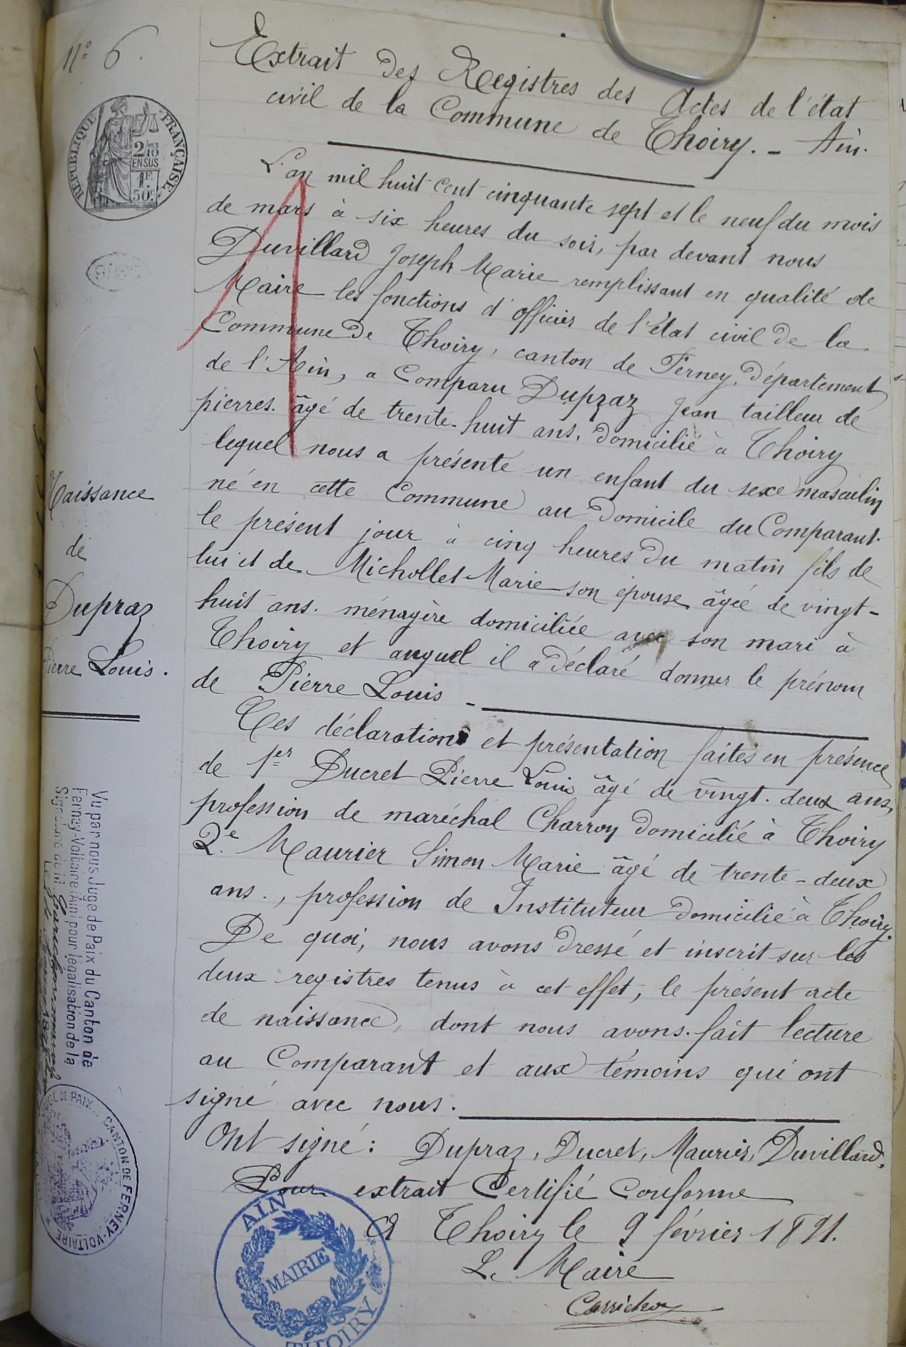 N° 6.
Extrait des Registres des Actes de l'état
civil de la Commune de Thoiry. - Ain.
RÉPUBLIQUE FRANÇAISE
2/10
EN SUS
1F
50c
L'an mil huit cent cinquante sept et le neuf du mois
de mars à six heures du soir, par devant nous
Duvillard Joseph Marie remplissant en qualité de
Maire les fonctions d'officier de l'état civil de la
Commune de Thoiry, canton de Ferney, département
de l'Ain, a Comparu Dupraz Jean tailleur de
pierres. âgé de trente-huit ans, domicilié à Thoiry
lequel nous a présenté un enfant du sexe masculin
né en cette Commune au domicile du Comparant
le présent jour à cinq heures du matin fils de
lui et de Michollet Marie son épouse âgée de vingt-
huit ans. ménagère domiciliée avec son mari à
Thoiry et auquel il a déclaré donner le prénom
de Pierre Louis -
Naissance
de
Dupraz
Pierre Louis.
Ces déclaration et présentation faites en présence
de 1er Ducret Pierre Louis âgé de vingt-deux ans,
profession de maréchal Charron domicilié à Thoiry
2e Maurier Simon Marie âgé de trente-deux
ans., profession de Instituteur domicilié à Thoiry.
De quoi, nous avons dressé et inscrit sur les
deux registres tenus à cet effet, le présent acte
de naissance, dont nous avons fait lecture
au Comparant et aux témoins qui ont
signé avec nous.
Ont signé: Dupraz, Ducret, Maurier, Duvillard,
Pour extrait Certifié Conforme
A Thoiry le 9 février 1891.
Le Maire
Vu par nous Juge de Paix du Canton de
Ferney-Voltaire (Ain) pour légalisation de la
Signature de M
DE PAIX - CANTON DE FERNEY-VOLTAIRE
AIN
MAIRIE
THOIRY